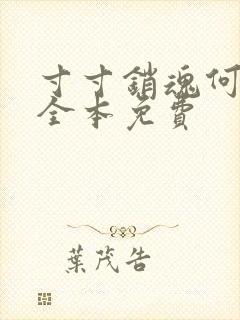 寸寸銷魂何
全本免費
葉茂告